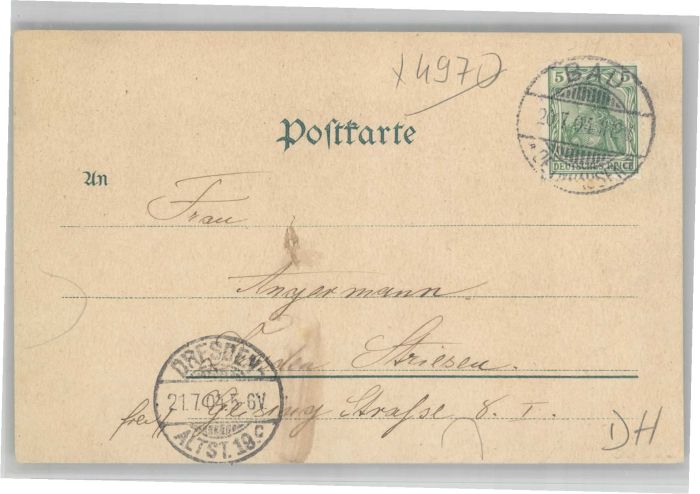 x4970
5 5
BAD
20.7.04
DEUTSCHES REICH
Postkarte
An
Frau
Angermann
Striesen.
DRESDEN-
21.7.04.5-6V
ALTST. 19.c
Straße 8. I.
DH